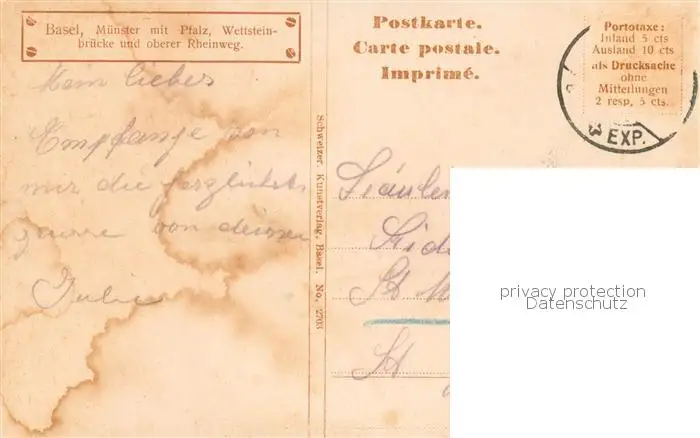 Basel, Münster mit Pfalz, Wettstein-
brücke und oberer Rheinweg.
Postkarte.
Carte postale.
Imprimé.
Portotaxe:
Inland 5 cts
Ausland 10 cts
als Drucksache
ohne
Mitteilungen
2 resp. 5 cts.
EXP.
Mein lieber
Empfange von
mir die herzlichsten
von deiner
Schweizer. Kunstverlag, Basel. No. 2703
Fräulein
St
St
privacy protection
Datenschutz